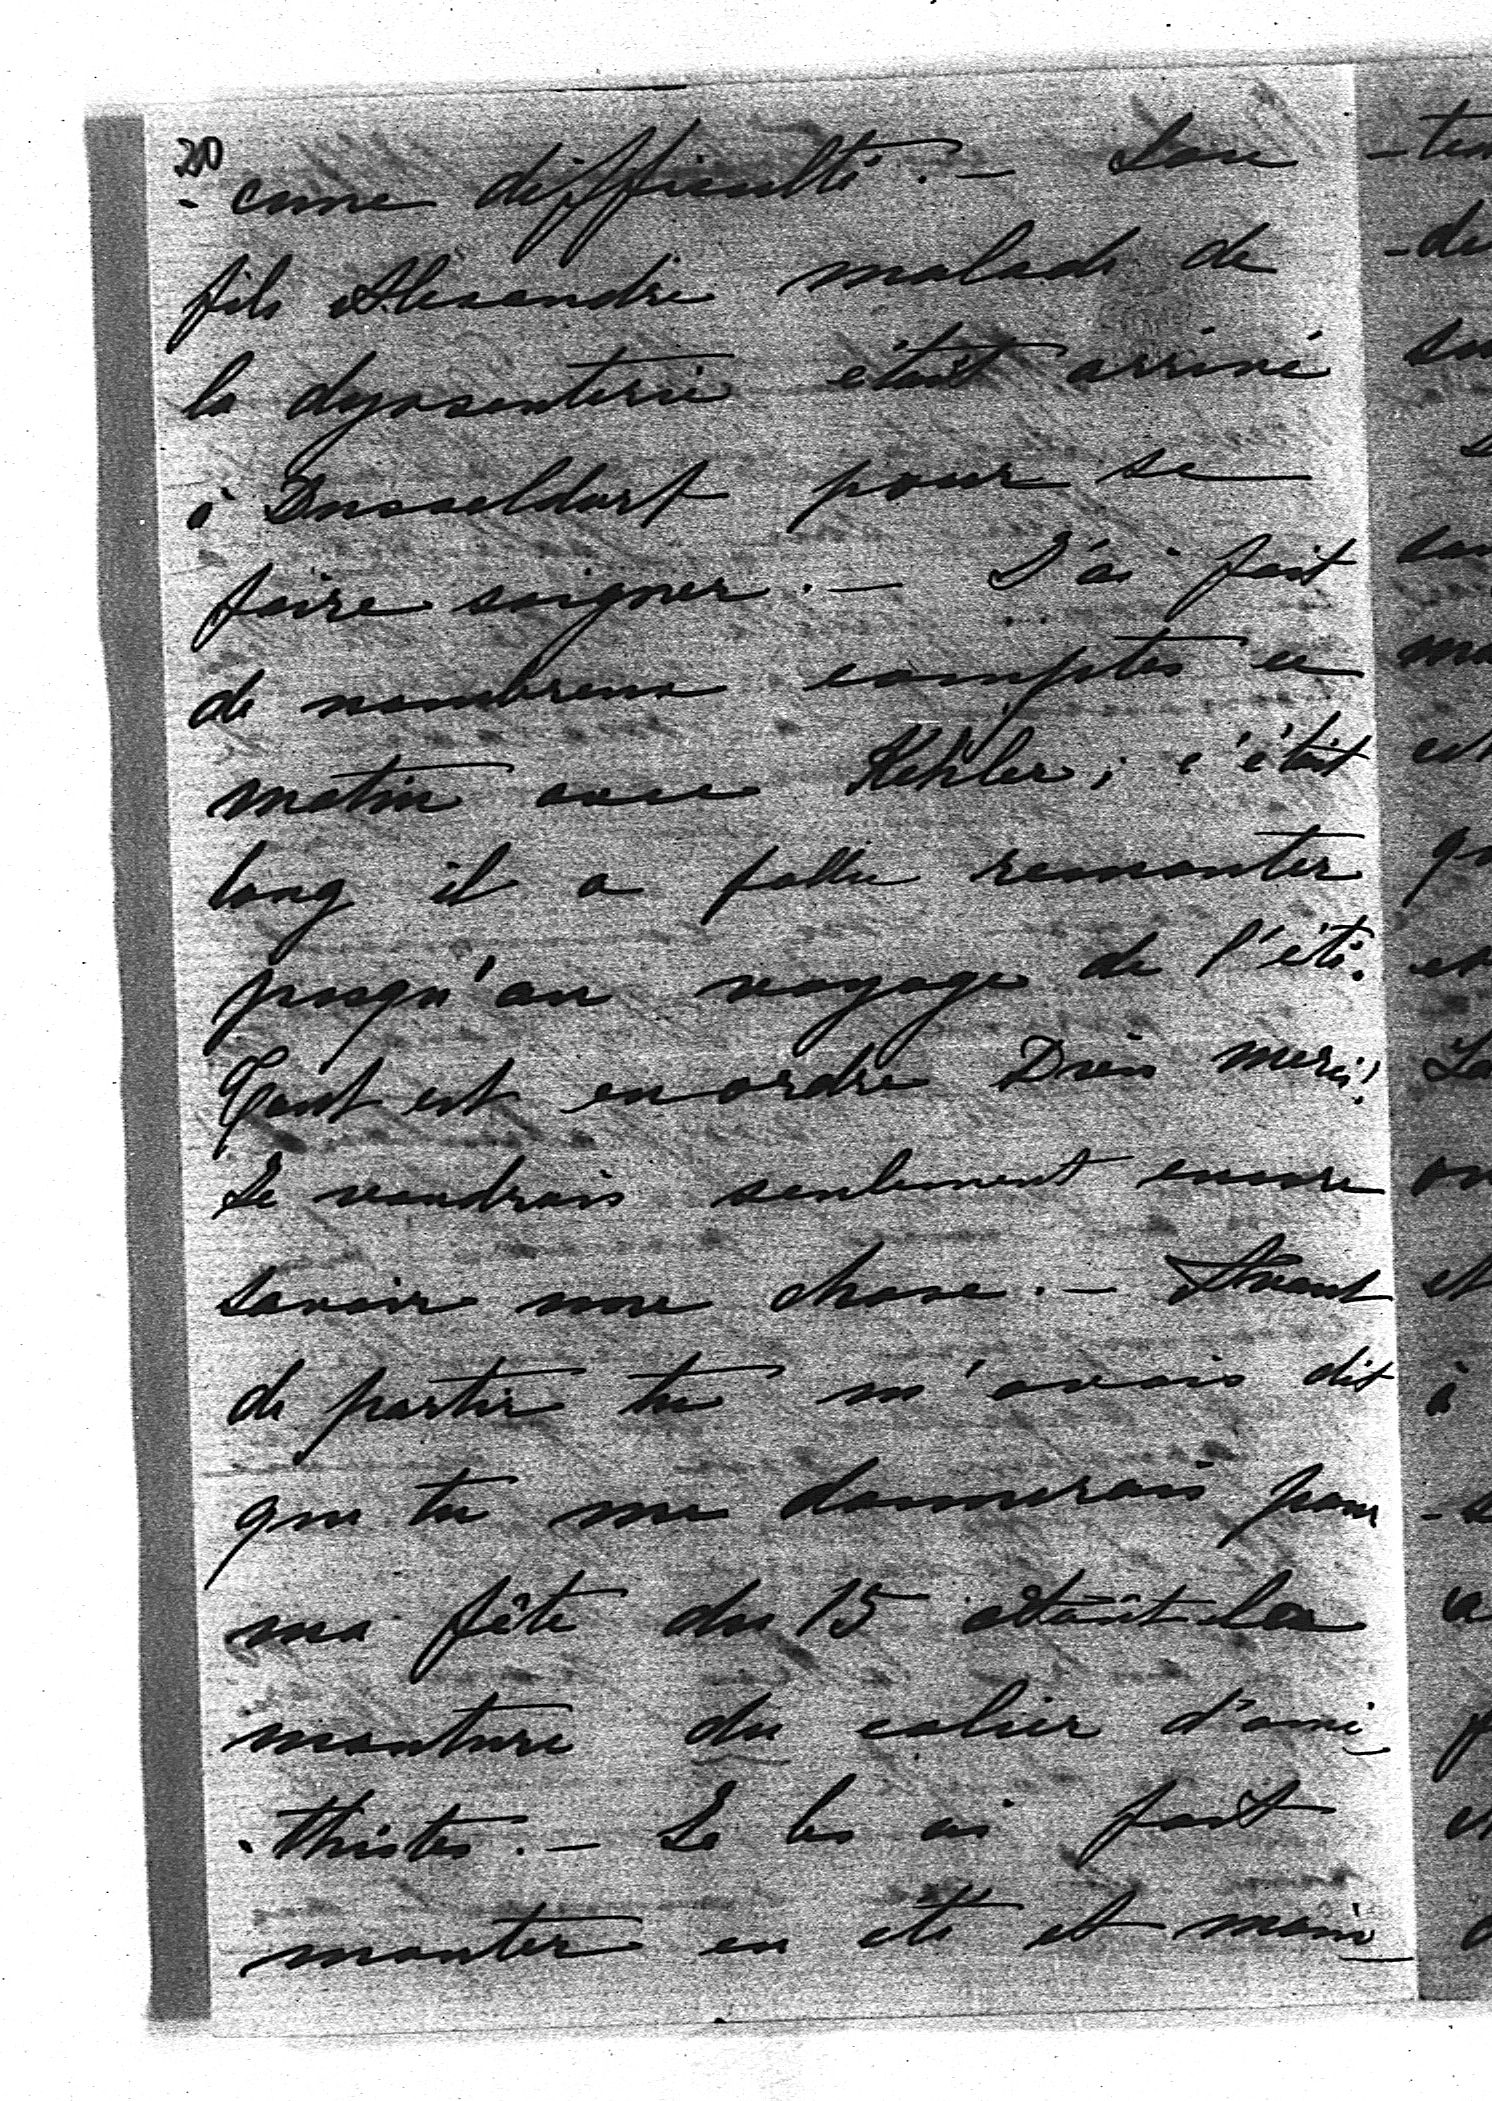 20
- cune difficulté. — Son
fils Alexandre malade de
la dyssenterie était arrivé
à Dusseldorf pour se
faire soigner. — J'ai fait
de nombreux comptes ce
matin avec Kehler; c'était
long il a fallu remonter
jusqu'au voyage de l'été.
Tout est en ordre Dieu merci!
Je voudrais seulement encore
savoir une chose. — Avant
de partir tu m'avais dit
que tu me donnerais pour
ma fête du 15 la
monture du colier d'amé-
- thistes. — Je les ai fait
monter en été et main-